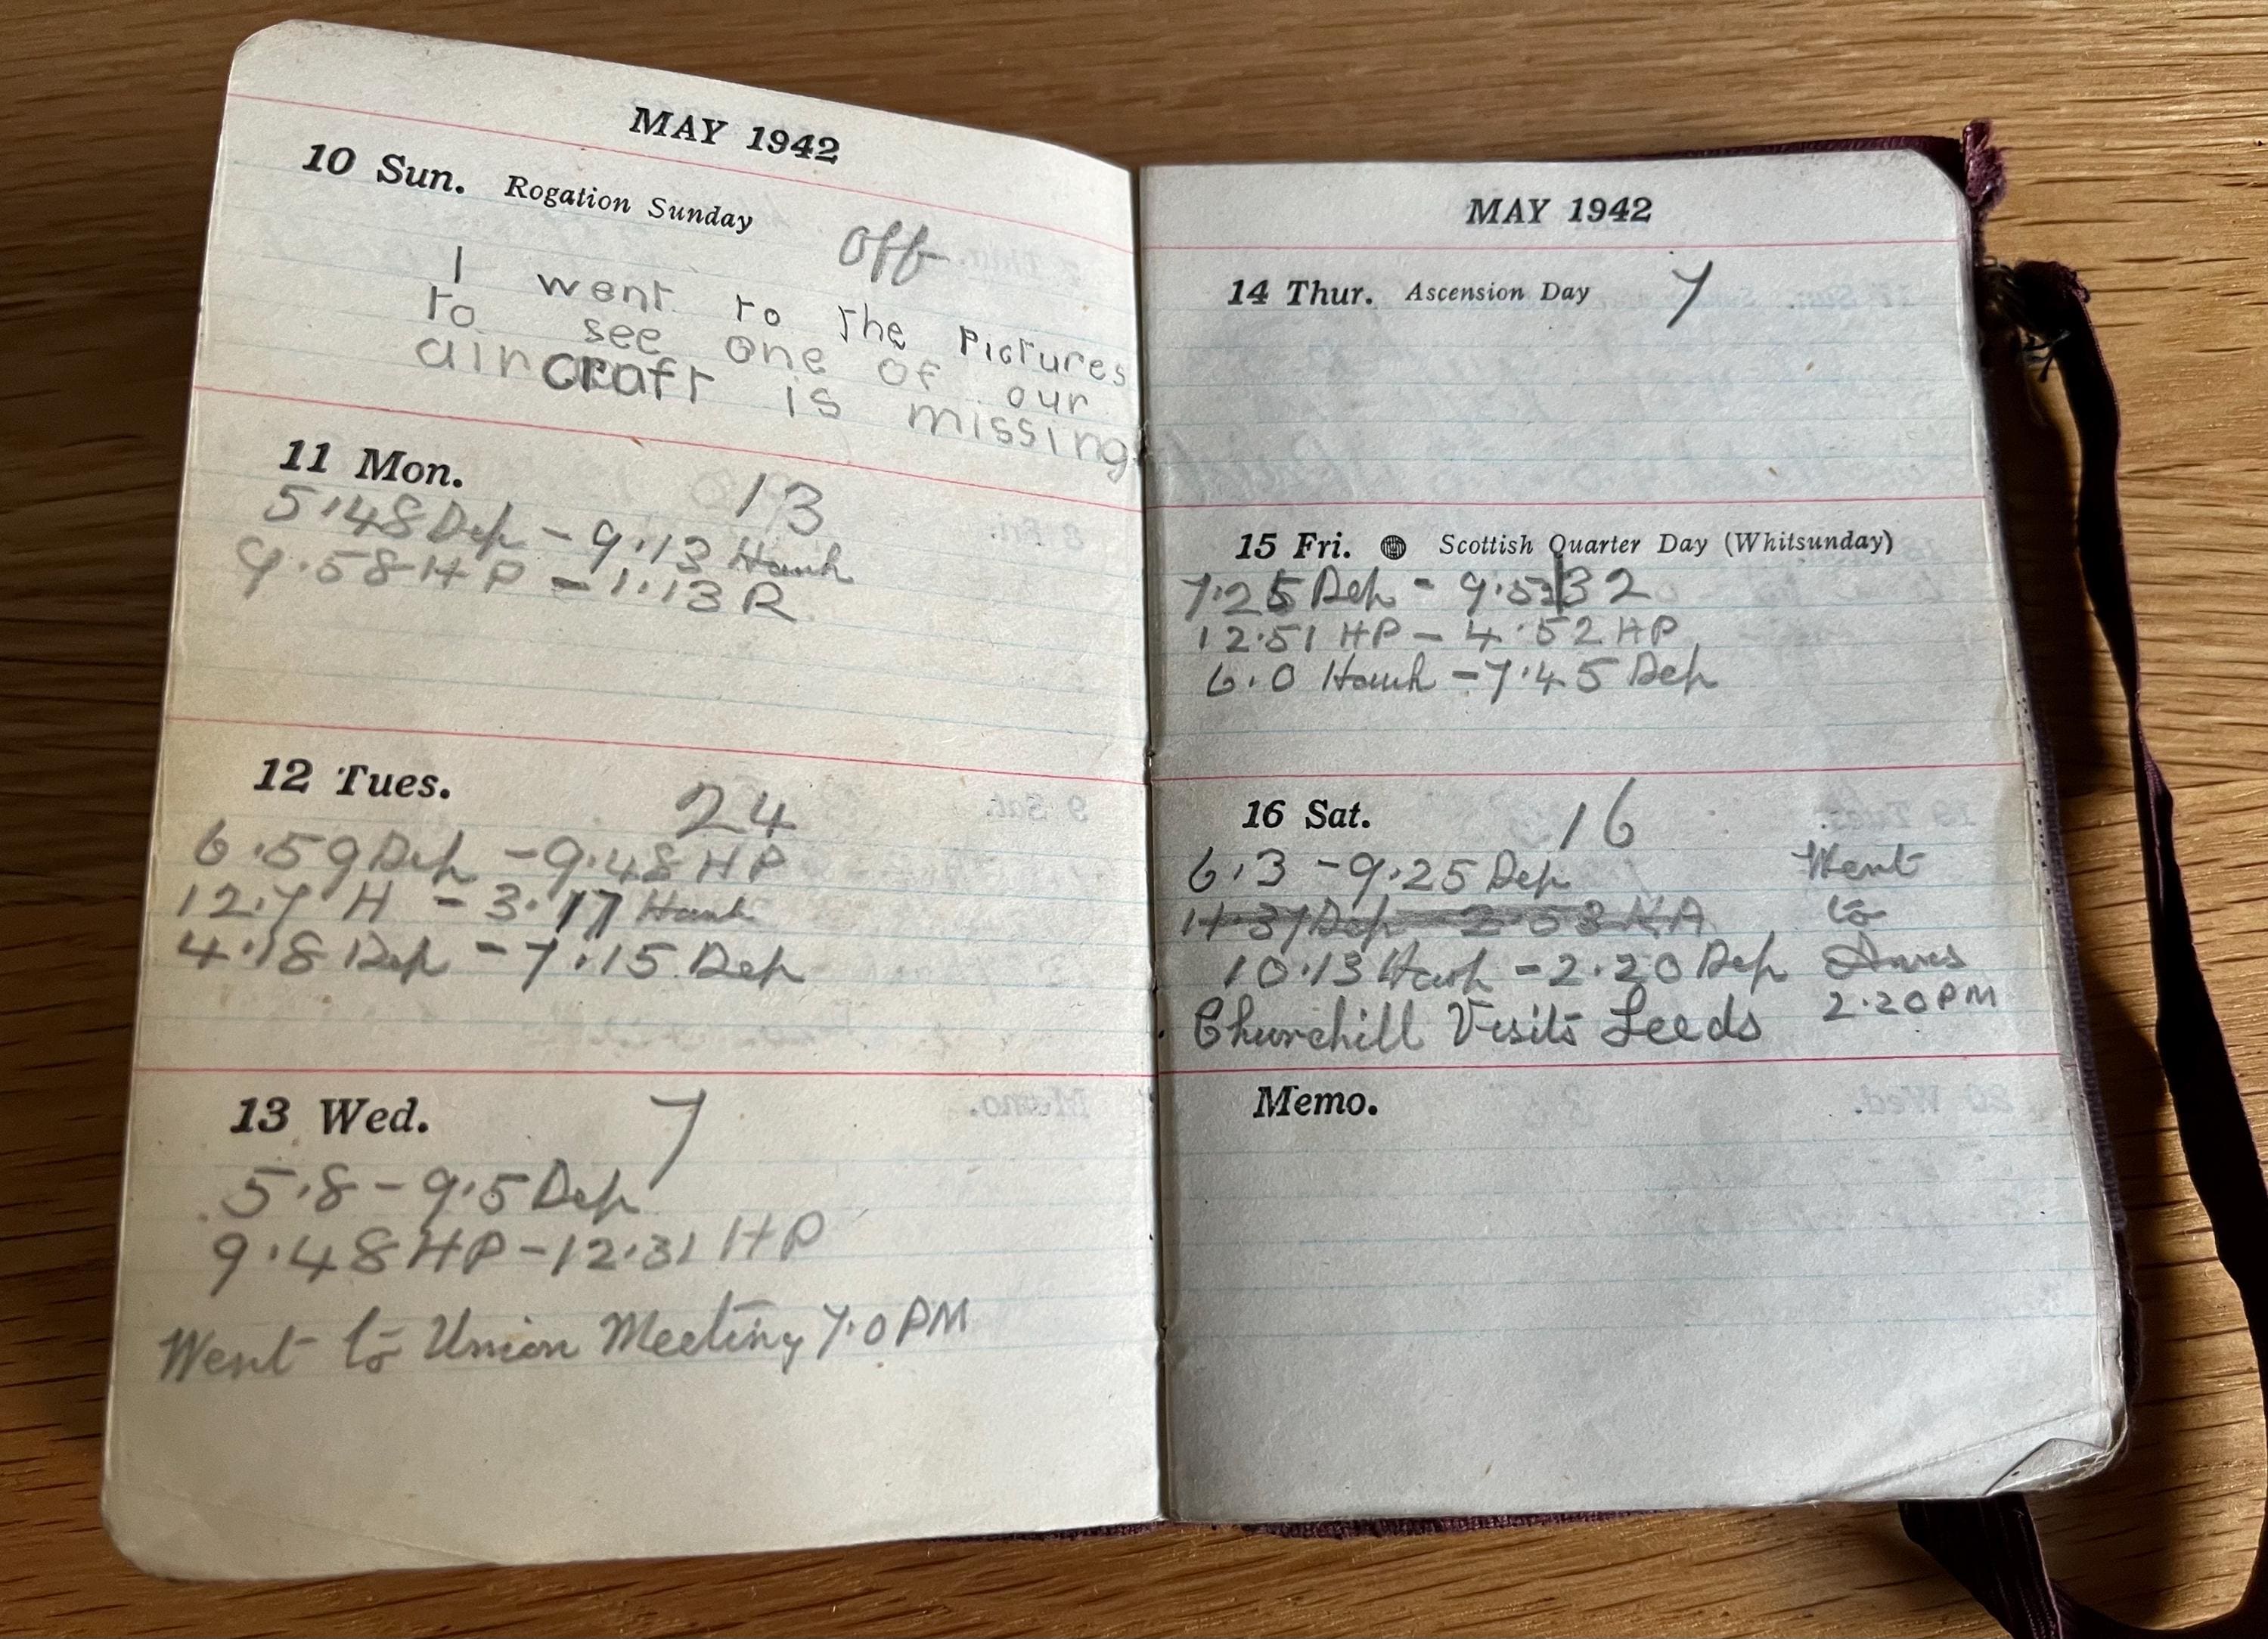 MAY 1942
10 Sun. Rogation Sunday
Off
I went to the Pictures
to see one of our
aircraft is missing
11 Mon. 13
5.48 Dep - 9.13 Hawk
9.58 HP - 1.13 R
12 Tues. 24
6.59 Dep - 9.48 HP
12.7 H - 3.17 Hawk
4.18 Dep - 7.15 Dep
13 Wed. 7
5.8 - 9.5 Dep
9.48 HP - 12.31 HP
Went to Union Meeting 7.0 PM
MAY 1942
14 Thur. Ascension Day 7
15 Fri. Scottish Quarter Day (Whitsunday)
7.25 Dep - 9.53 32
12.51 HP - 4.52 HP
6.0 Hawk - 7.45 Dep
16 Sat. 16
6.3 - 9.25 Dep
11.37 Dep - 2.53
10.13 Hawk - 2.20 Dep
Churchill Visits Leeds
Went
to
2.20 PM
Memo.